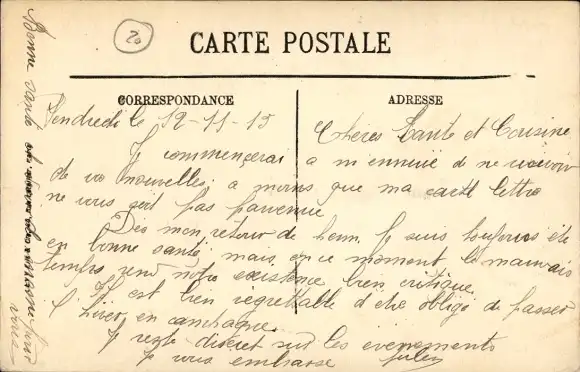 20
CARTE POSTALE
CORRESPONDANCE
ADRESSE
Vendredi le 12-11-15
Chères Tante et Cousine
Je commencerai a m'ennuié de ne recevoir
de vos nouvelles, a moins que ma carte lettre
ne vous soit pas parvenue
Des mon retour de perm. Je suis toujours été
en bonne santé, mais en ce moment le mauvais
temps rend notre existence bien critique.
Il est bien regrettable d'etre obligé de passer
l'hiver en campagne.
Je reste discret sur les evenements
Je vous embrasse Jules
Bonne santé